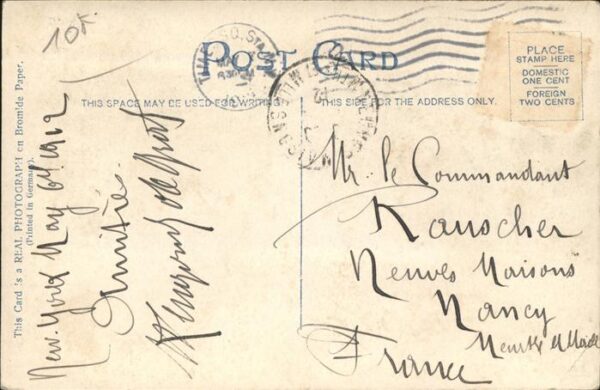 10k
POST CARD
THIS SPACE MAY BE USED FOR WRITING
THIS SIDE FOR THE ADDRESS ONLY.
PLACE
STAMP HERE
DOMESTIC
ONE CENT
FOREIGN
TWO CENTS
This Card is a REAL PHOTOGRAPH on Bromide Paper.
(Printed in Germany)
New-York May 6th 1912
Amitiés.
Mr. le Commandant
Rauscher
Neuves Maisons
Nancy
Meurthe et Moselle
France